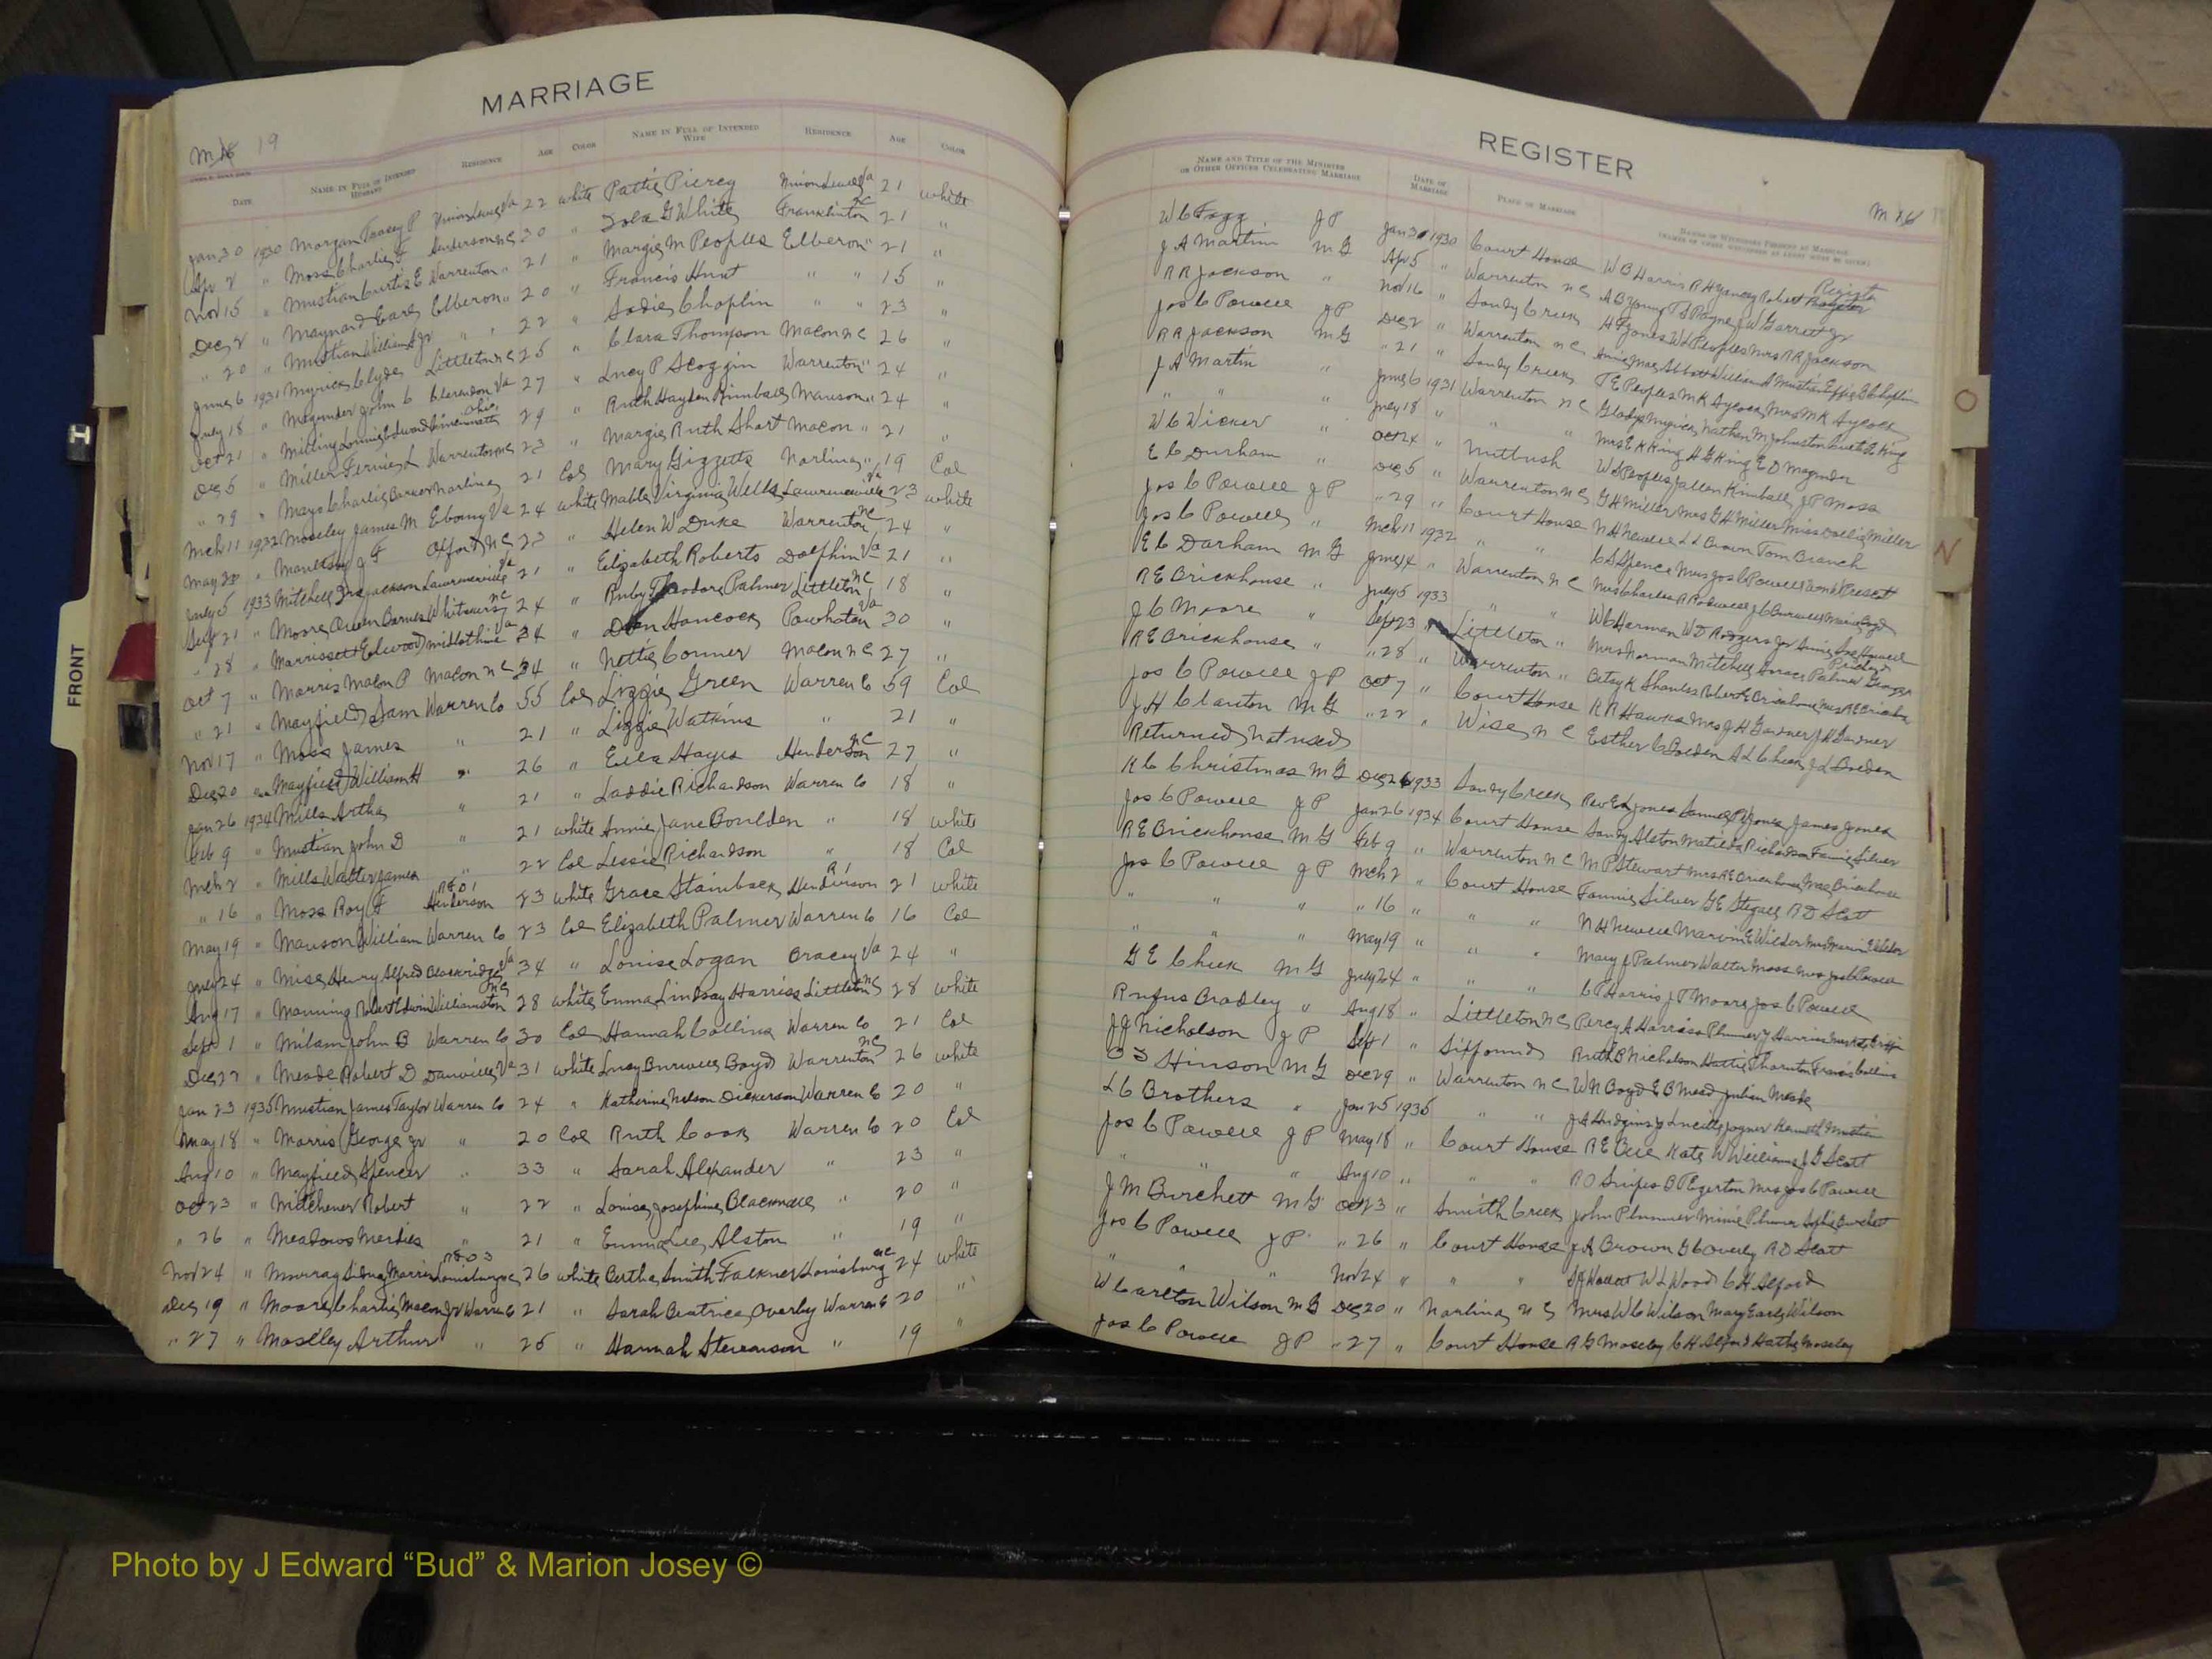 MARRIAGE
M 19
DATE NAME IN FULL OF INTENDED HUSBAND RESIDENCE AGE COLOR NAME IN FULL OF INTENDED WIFE RESIDENCE AGE COLOR
Jan 30 1930 Morgan Tracey P Va 22 white Pattie Piercy Va 21 white
Apr 2 " Moss Charlie F Henderson NC 20 " Iola G White Franklinton NC 21 "
Nov 15 " Mustian Curtis E Warrenton " 21 " Margie M Peoples Elberon " 21 "
Dec 2 " Maynard Earl Elberon " 20 " Francis Hunt " " 15 "
" 20 " Mustian William Jr " " 22 " Sadie Choplin " " 23 "
June 6 1931 Myrick Clyde Littleton NC 25 " Clara Thompson Macon NC 26 "
July 18 " Magruder John C Clarendon Va 27 " Lucy P Scoggin Warrenton " 24 "
Oct 21 " Milling Lonnie Edward Cincinnati Ohio 29 " Ruth Hayden Kimball Manson " 24 "
Dec 5 " Miller Fernie L Warrenton NC 23 " Margie Ruth Short Macon " 21 "
" 29 " Mayo Charlie Norlina 21 Col Mary Gizzette Norlina " 19 Col
Mch 11 1932 Moseley James M Ebony Va 24 white Mable Virginia Wells Lawrenceville Va 23 white
May 28 " Moultry J F Oxford NC 23 " Helen W Duke Warrenton NC 24 "
July 5 1933 Mitchell Jackson Lawrenceville Va 21 " Elizabeth Roberts Dolphin Va 21 "
Sept 21 " Moore Owen Barnes Whitakers NC 24 " Ruby Theodora Palmer Littleton NC 18 "
" 28 " Morrissett Elwood Midlothian Va 24 " Hancock Powhatan Va 30 "
Oct 7 " Morris Macon P Macon NC 34 " Nettie Conner Macon NC 27 "
" 21 " Mayfield Sam Warren Co 55 Col Lizzie Green Warren Co 59 Col
Nov 17 " Moss James " 21 " Lizzie Watkins " 21 "
Dec 20 " Mayfield William H " 26 " Ella Hayes Henderson NC 27 "
Jan 26 1934 Mills Artha " 21 " Laddie Richardson Warren Co 18 "
Feb 9 " Mustian John D " 21 white Annie Jane Boulden " 18 white
Mch 2 " Mills Walter James " 22 Col Lessie Richardson " 18 Col
" 16 " Moss Roy F RFD 1 Henderson 23 white Grace Stainback R1 Henderson 21 white
May 19 " Manson William Warren Co 23 Col Elizabeth Palmer Warren Co 16 Col
July 24 " Mise Henry Alfred Blackridge Va 34 " Louise Logan Bracey Va 24 "
Aug 17 " Manning Robert Edwin Williamston NC 28 white Emma Lindsay Harriss Littleton NC 28 white
Sept 1 " Milam John B Warren Co 30 Col Hannah Collins Warren Co 21 Col
Dec 27 " Meade Robert D Danville Va 31 white Lucy Burwell Boyd Warrenton NC 26 white
Jan 23 1935 Mustian James Taylor Warren Co 24 " Katherine Nelson Dickerson Warren Co 20 "
May 18 " Morris George Jr " 20 Col Ruth Cook Warren Co 20 Col
Aug 10 " Mayfield Spencer " 33 " Sarah Alexander " 23 "
Oct 23 " Mitchener Robert " 22 " Louise Josephine Blacknall " 20 "
" 26 " Meadows " 21 " Emma Lee Alston " 19 "
Nov 24 " Murray Sidney Morris RFD 3 Louisburg NC 26 white Bertha Smith Falkner Louisburg NC 24 white
Dec 19 " Moore Charlie Macon Jr Warren Co 21 " Sarah Beatrice Overby Warren Co 20 "
" 27 " Moseley Arthur " 25 " Hannah Stevenson " 19 "
REGISTER
M 16
NAME AND TITLE OF THE MINISTER OR OTHER OFFICER CELEBRATING MARRIAGE DATE OF MARRIAGE PLACE OF MARRIAGE
W C Fagg JP Jan 30 1930 Court House W B Harris R H Yancey Robert Register
J A Martin MG Apr 5 " Warrenton NC A B Young T S Payne J W Garrett Jr
R R Jackson " Nov 16 " Sandy Creek H F Jones W L Peoples Mrs R R Jackson
Jos C Powell JP Dec 2 " Warrenton NC Annie Mae Abbott William A Mustian Effie Choplin
R R Jackson MG " 21 " Sandy Creek T E Peoples M K Aycock Mrs M K Aycock
J A Martin " June 6 1931 Warrenton NC Gladys Myrick Nathan M Johnston King
" " " July 18 " " " Mrs E K King H G King E D Magruder
W C Wicker " Oct 24 " Nutbush W L Peoples J Allen Kimball J P Moss
E C Durham " Dec 5 " Warrenton NC G H Miller Mrs G H Miller Miss Miller
Jos C Powell JP " 29 " Court House N H Newell L L Brown Tom Branch
Jos C Powell " Mch 11 1932 " " C S Spence Mrs Jos C Powell
E C Durham MG June 4 " Warrenton NC Mrs Charles R Rodwell J C Burwell
R E Brickhouse " July 5 1933 " " W C Harmon W D Rodgers Jr
J C Moore " Sept 23 " Littleton " Mrs Norman Mitchell Horace Palmer
R E Brickhouse " " 28 " Warrenton " Betsy K Shanks Robert E Brickhouse Mrs R E Brickhouse
Jos C Powell JP Oct 7 " Court House R R Hawks Mrs J H Gardner J H Gardner
J H Clanton MG " 22 " Wise NC Esther C Boyden
Returned Not used
K C Christmas MG Dec 26 1933 Sandy Creek Rev E L Jones Jones James Jones
Jos C Powell JP Jan 26 1934 Court House Sandy Alston Matilda Richardson Fannie Silver
R E Brickhouse MG Feb 9 " Warrenton NC M P Stewart Mrs R E Brickhouse Mae Brickhouse
Jos C Powell JP Mch 2 " Court House Fannie Silver G E Stegall R D Scott
" " " " 16 " " " N H Newell Marvin E Wilder Mrs Marvin E Wilder
" " May 19 " " " Mary J Palmer Walter Moss Mrs Jos C Powell
G E Cheek MG July 24 " " " C P Harris J T Moore Jos C Powell
Rufus Bradley " Aug 18 " Littleton NC Percy A Harriss Plummer Harriss
J J Nicholson JP Sept 1 " Sixpound Ruth B Nicholson Hattie Thornton Francis Collins
Hinson MG Dec 29 " Warrenton NC W N Boyd E B Mead Julian Meade
L C Brothers " Jan 25 1935 " " J A Hudgins Jr Lucille Joyner Kenneth Mustian
Jos C Powell JP May 18 " Court House R E Kate W Williams J G Scott
" " " Aug 10 " " " R O Snipes B T Egerton Mrs Jos C Powell
J M Burchett MG Oct 23 " Smith Creek John Plummer Minnie Plummer Burchett
Jos C Powell JP " 26 " Court House J A Brown G C Overby R D Scott
" " Nov 24 " " " W L Wood C H Alford
W Carlton Wilson MG Dec 20 " Norlina NC Mrs W C Wilson Mary Early Wilson
Jos C Powell JP " 27 " Court House R G Moseley C H Alford Moseley
FRONT
H
O
N
Photo by J Edward “Bud” & Marion Josey ©